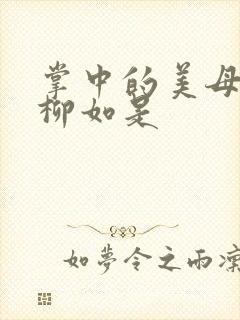 掌中的美母
柳如是
如夢令之雨凜